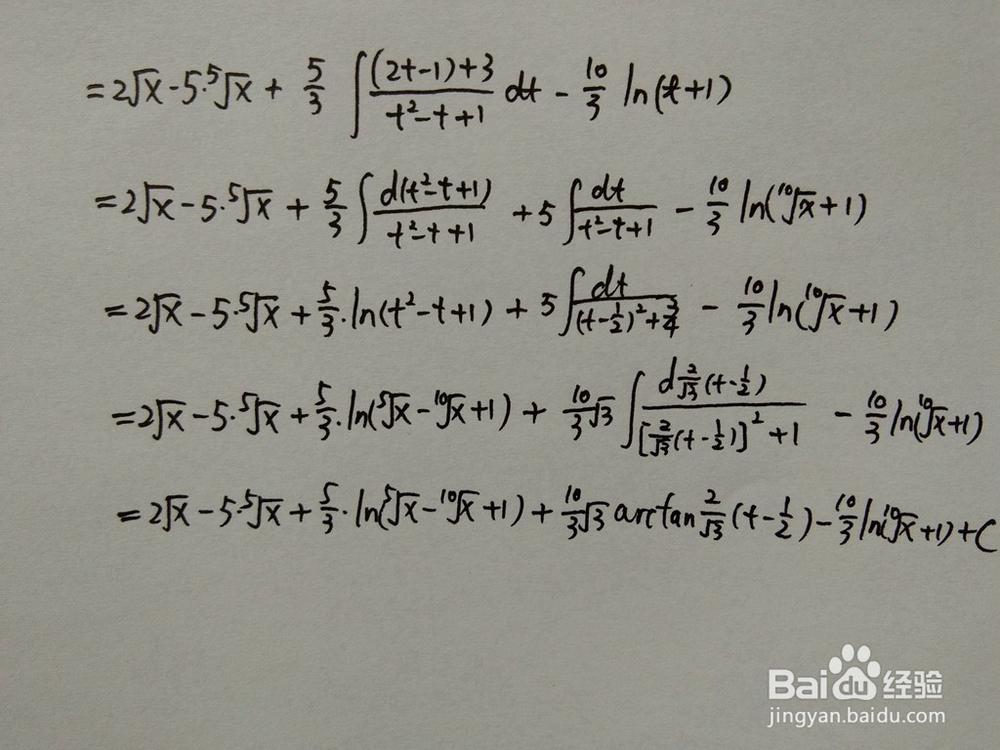 =2√x-5·⁵√x+ 5/3 ∫ (2t-1)+3 / t²-t+1 dt - 10/3 ln(t+1)
=2√x-5·⁵√x + 5/3 ∫ d(t²-t+1) / t²-t+1 +5 ∫ dt / t²-t+1 - 10/3 ln(¹⁰√x+1)
=2√x-5·⁵√x + 5/3·ln(t²-t+1) + 5 ∫ dt / (t-1/2)²+3/4 - 10/3 ln(¹⁰√x+1)
=2√x-5·⁵√x + 5/3·ln(⁵√x-¹⁰√x+1) + 10/3√3 ∫ d 2/√3 (t-1/2) / [2/√3(t-1/2)]²+1 - 10/3 ln(¹⁰√x+1)
=2√x-5·⁵√x+ 5/3·ln(⁵√x-¹⁰√x+1)+ 10/3√3 arctan 2/√3 (t-1/2)- 10/3 ln(¹⁰√x+1)+C
Baidu经验
jingyan.baidu.com